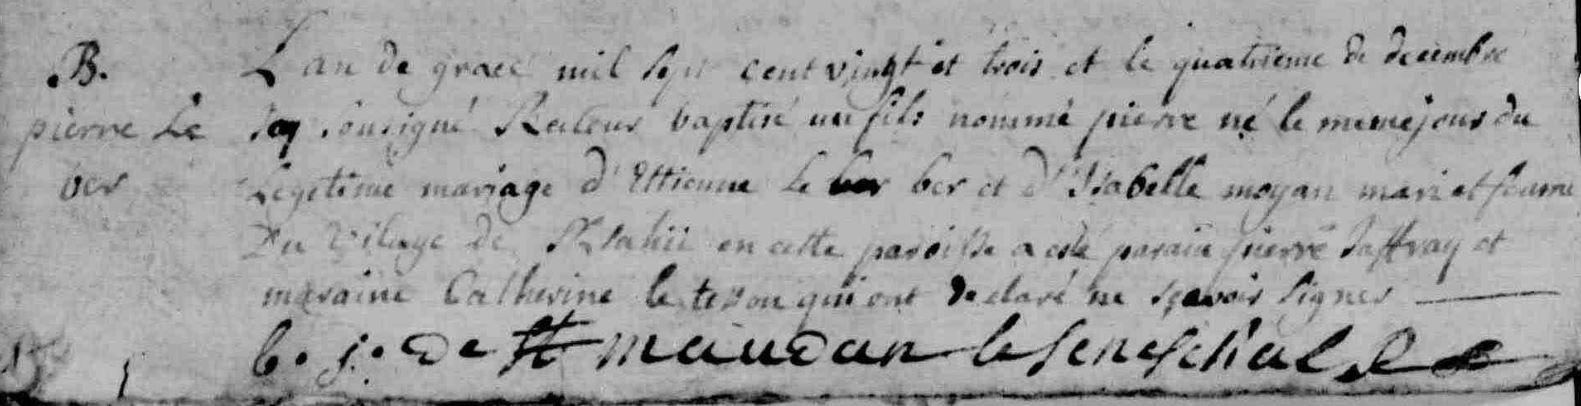 B.
pierre Le
ber
L'an de grace mil sept cent vingt et trois et le quatrieme de decembre
Soussigné Recteur baptisé un fils nommé pierre né le meme jour du
Legitime mariage d'Ettienne Le ber et d'Isabelle moyan mari et femme
Du vilage de en cette paroisse a esté parain pierre Jaffray et
maraine Catherine le tesson qui ont declaré ne sçavoir signer
de St maudan le seneschal